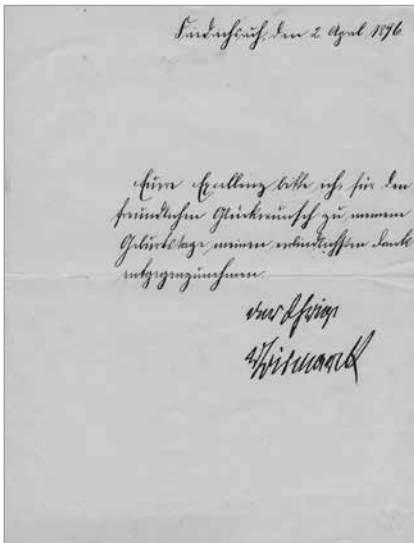 Friedrichsruh, den 2 April 1896
Eure Excellenz bitte ich für den
freundlichen Glückwunsch zu meinem
Geburtstage meinen verbindlichsten Dank
entgegenzunehmen.
der Ihrige
vBismarck